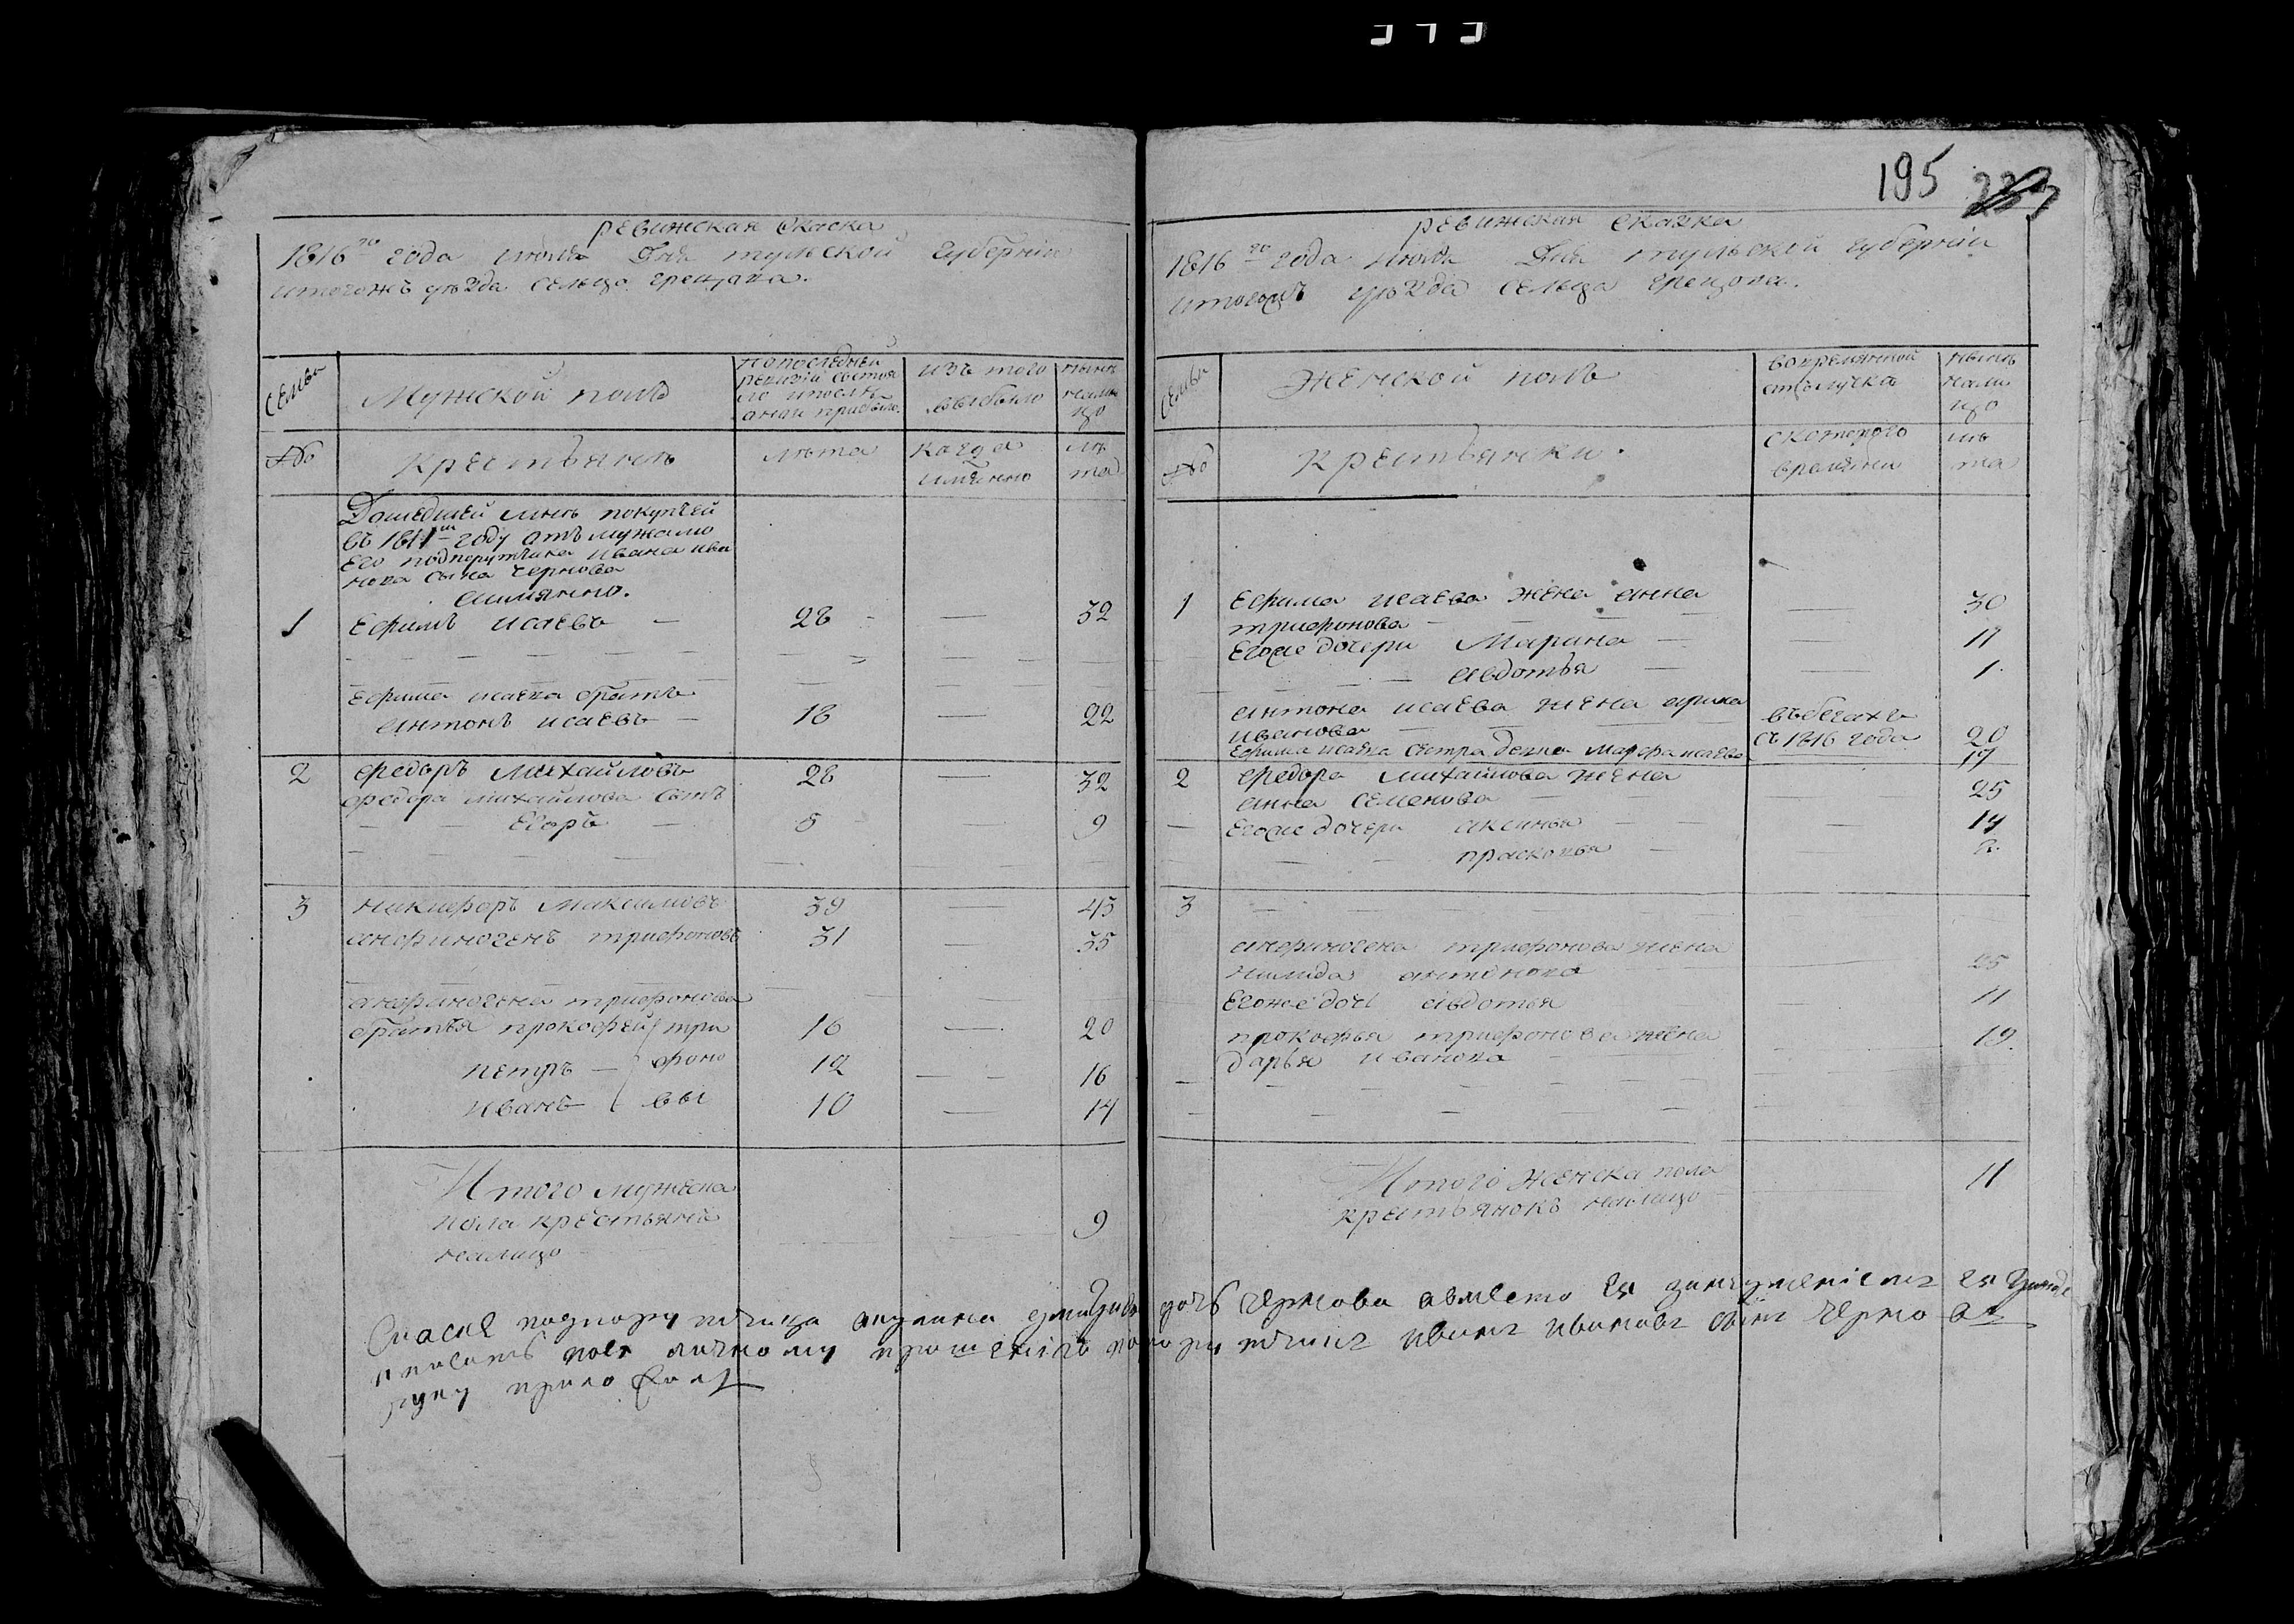 195
ревижская скаска
1816го года июля Дня тульской губерніи
итогожъ уѣзда сельца грецова.
семьи
Мужской полъ
напоследней
ревизіи состоя
ло ипослѣ
оной прибыло
изъ того
выбыло
нынѣ
нали
цо
№
крестьянѣ
лѣта
когда
имянно
лѣ
та
Дошедшей мнѣ покупкей
въ 1811м году отъ мужа мо
его подпорутчика ивана ива
нова сына чернова
аимянно.
1 Ефимъ исаевъ 28 32
Ефима исаева братъ
антонъ исаевъ 18 22
2 федоръ михайловъ 28 32
федора михайлова сынъ
Егоръ 5 9
3 никифоръ максимовъ 39 43
анфиногенъ трифоновъ 31 35
анфиногена трифонова
братья прокофей три 16 20
петръ фоно 12 16
иванъ вы 10 14
Итого мужска
пола крестьянъ
налицо 9
ревижская сказка
1816го года июля Дня тульской губерніи
итогожъ уѣзда сельца грецова.
семьи
Женской полъ
вовремянной
отлучкѣ
нынѣ
нали
цо
№
крестьянки.
скоторого
времяни
лѣ
та
1 Ефима исаева жена анна
трифонова 30
Егоже дочери Марина 11
авдотья 1
антона исаева жена арина
иванова въбегахъ
съ 1816 года 20
Ефима исаева сестра девка марфа исаева 17
2 федора михайлова жена
анна семенова 25
Егоже дочери аксинья 14
прасковья 2
3
анфиногена трифонова жена
антонова 25
Егоже дочь авдотья 11
прокофья трифонова жена
дарья иванова 19
Итого женска пола
крестьянокъ налицо 11
подпорутчица акулина дочь чернова авместо ея
поея личному прошенію подпорутчикъ иванъ ивановъ сынъ черновъ
руку приложилъ